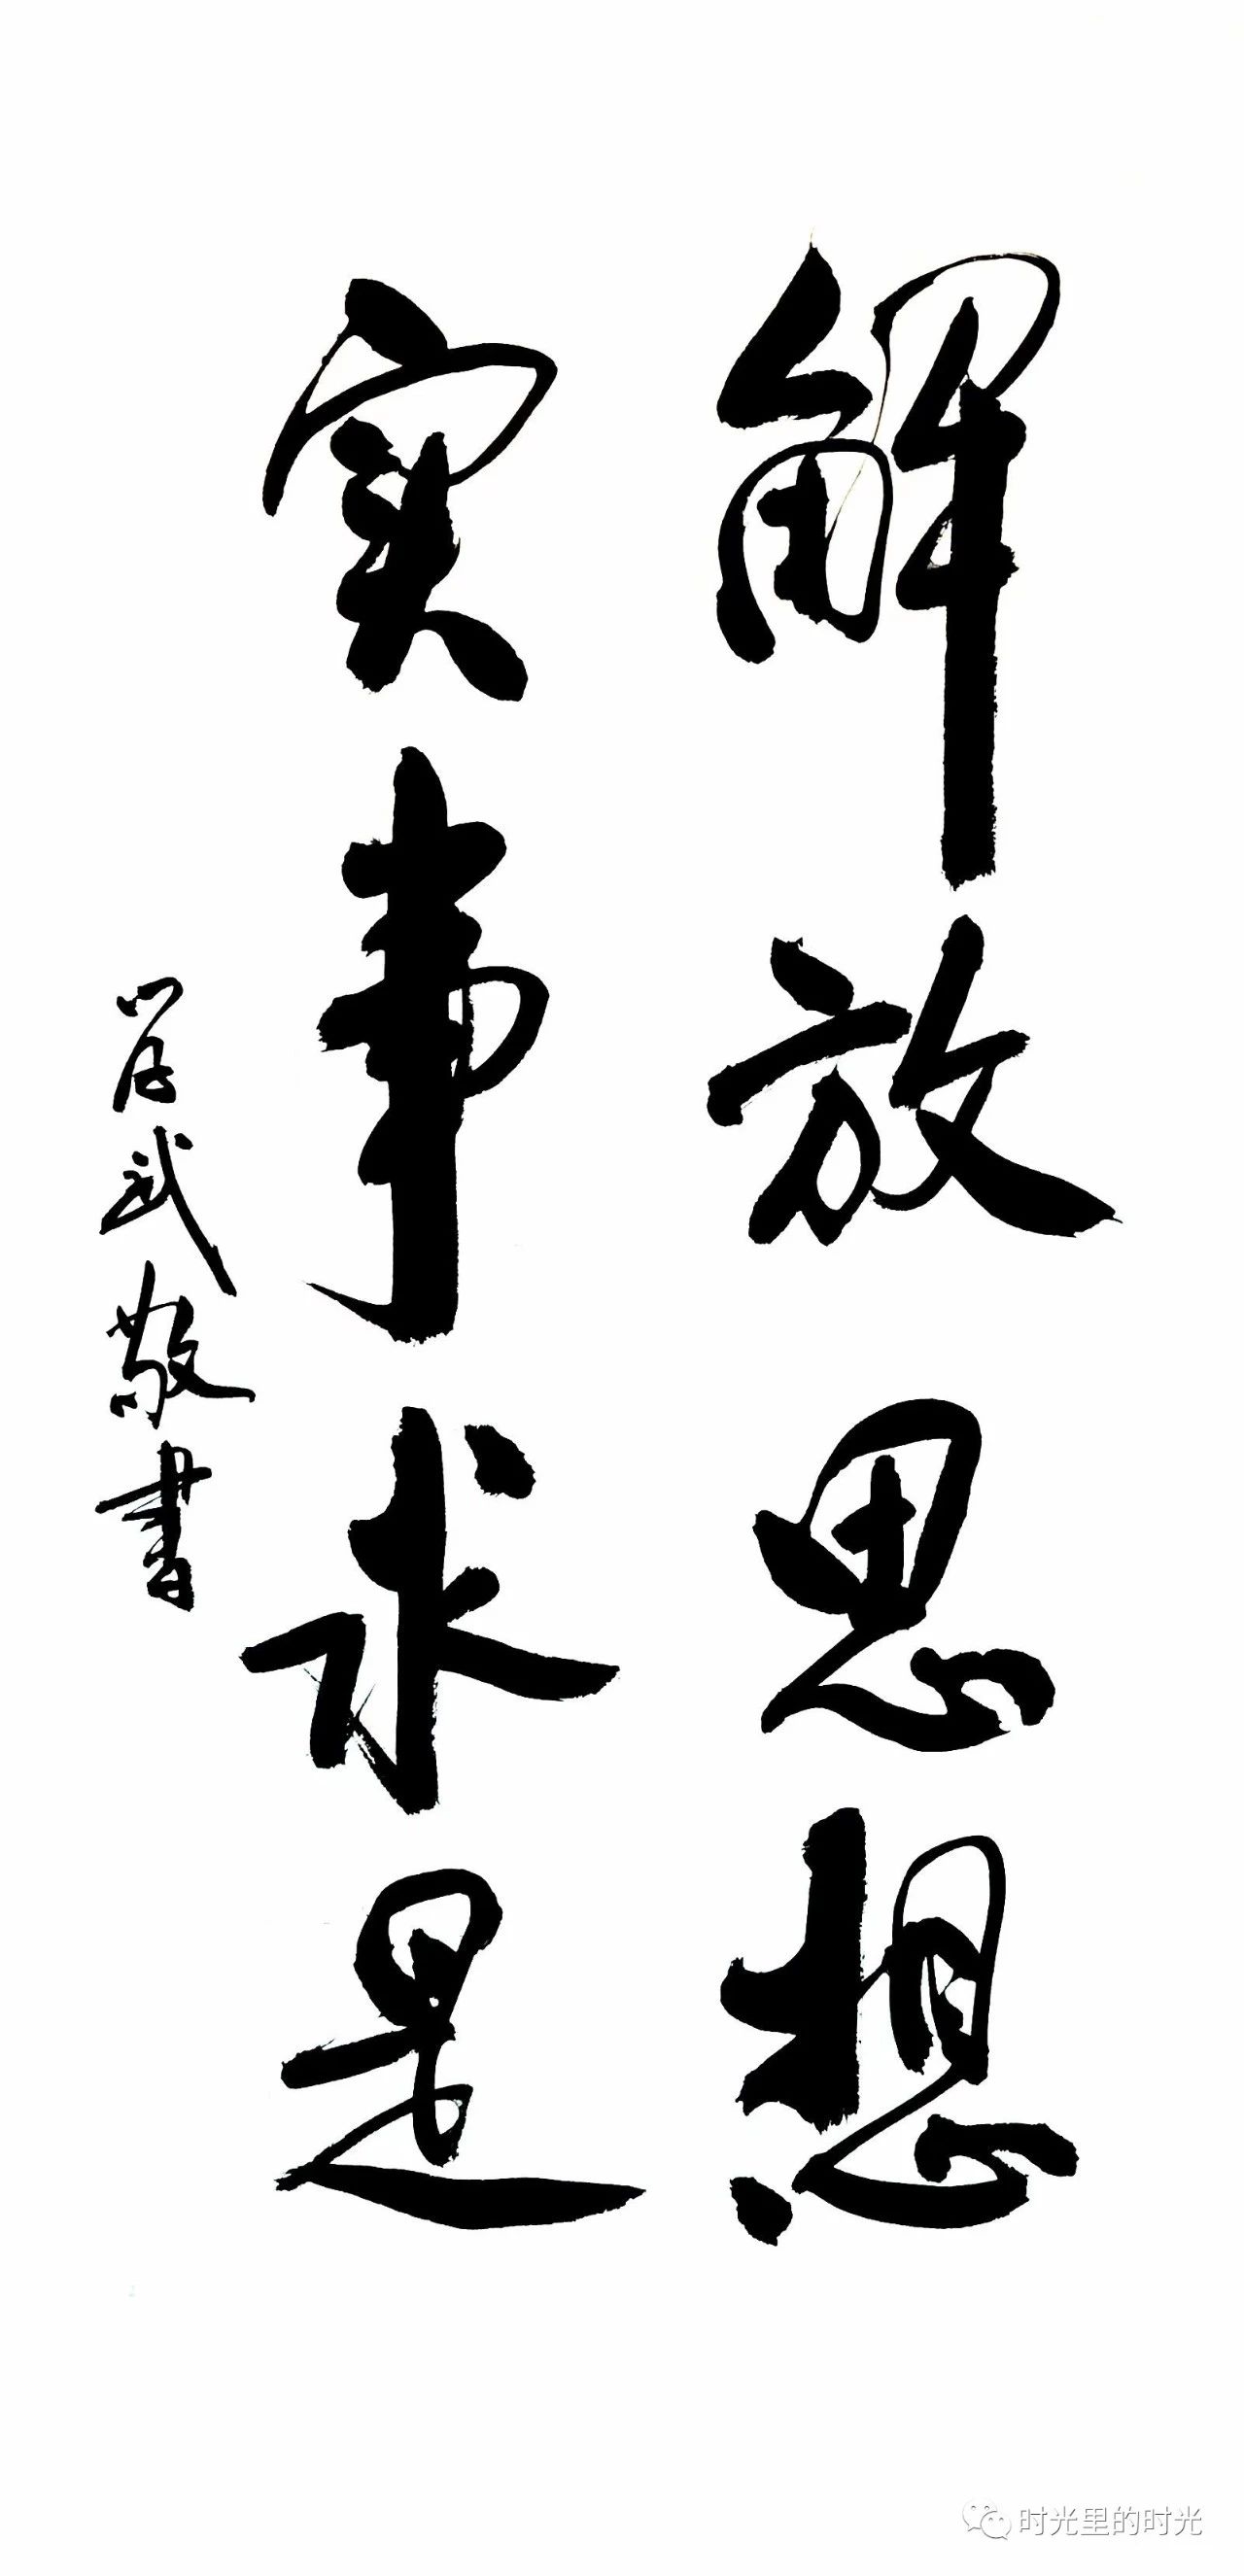 解放思想
实事求是
武敬書
时光里的时光